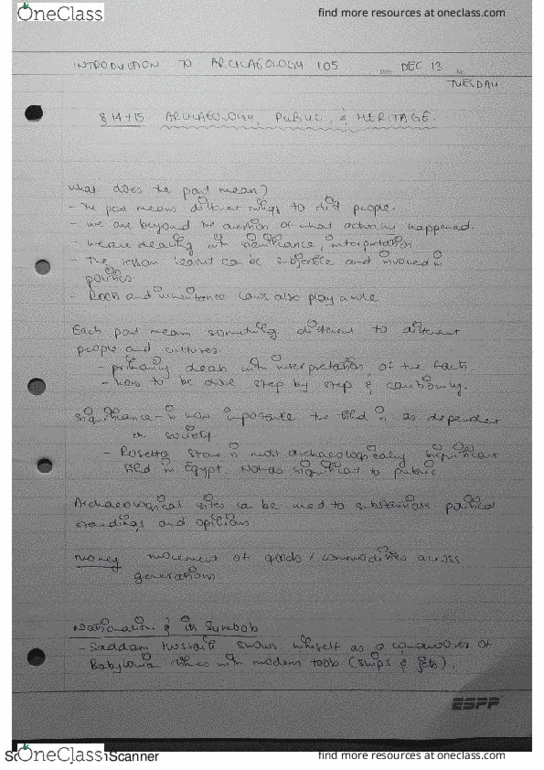 OneClass
find more resources at oneclass.com
INTRODUCTION TO ARCHAEOLOGY 105 DATE DEC 13
TUESDAY
§ 14+15 ARCHAEOLOGY, PUBLIC, & HERITAGE.
What does the past mean?
- the past means different things to diff people.
- we are beyond the question of what actually happened.
- we are dealing with significance, interpretation
- The lesson learnt can be subjective and involved in
politics.
- and inheritance laws also play a role
Each past means something different to different
people and cultures.
- primarily deals with interpretation of the facts.
- to be done step by step & cautiously.
Significance - is how important the find is as dependent
on society
- Rosetta Stone is most archaeologically significant
find in Egypt. Not as significant to public
Archaeological sites can be used to substantiate political
standings and opinions
money movement of goods / commodities across
generations
Nationalism & its Symbols
- Saddam Hussein shows himself as a of
Babylonia with modern tools (ships & jets).
ESPP
OneClass
Scanner
find more resources at oneclass.com